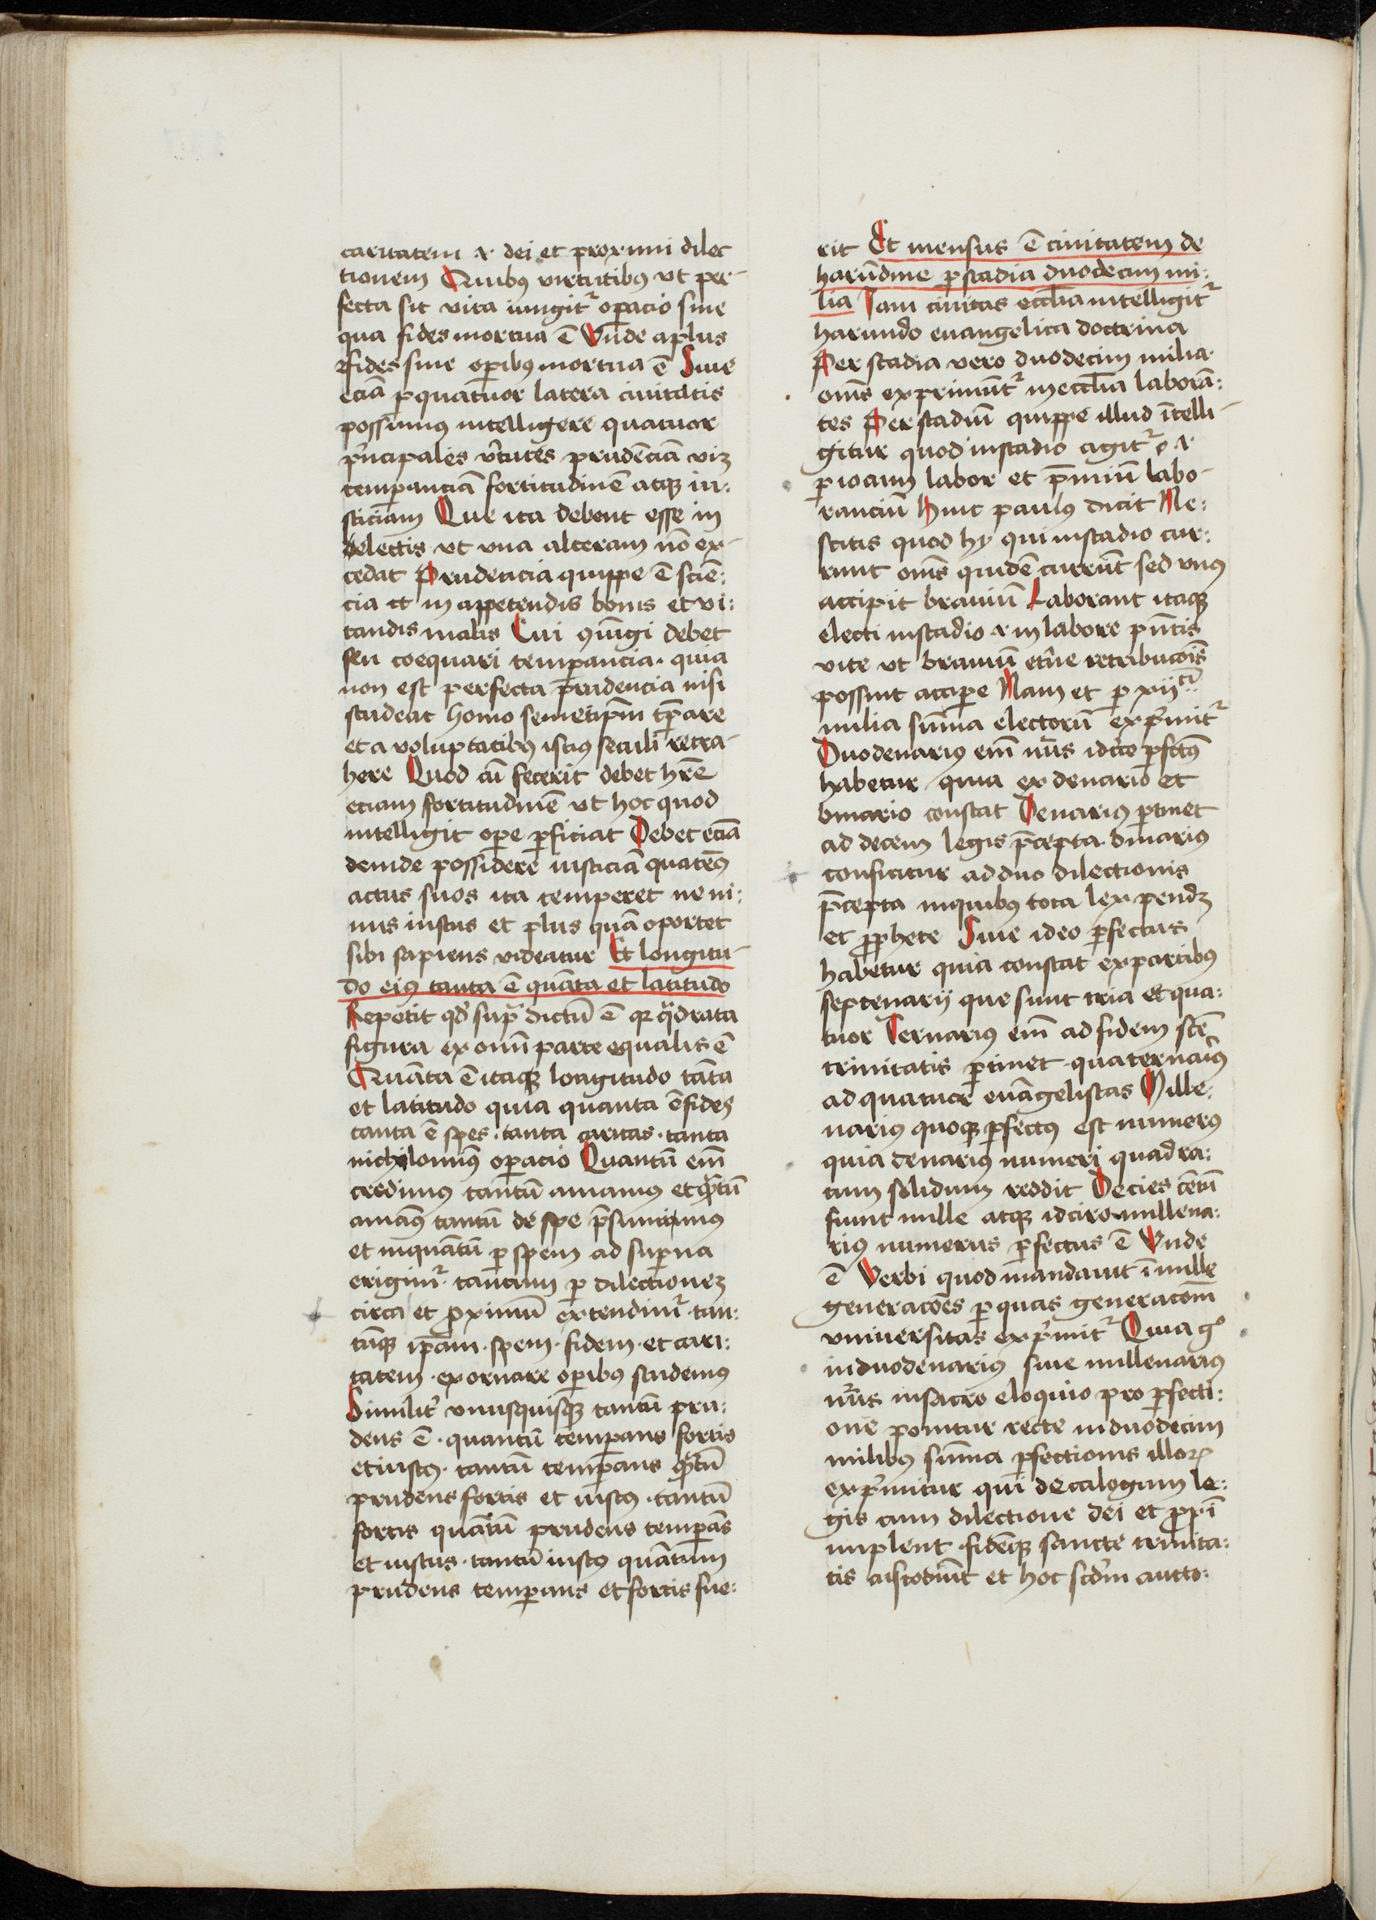 caritatem .i. dei et proximi dilec
tionem Quibus virtutibus ut per-
fecta sit vita iungit᷑ op̱acio sine
qua fides mortua ē Vn̄de aplus
Fides sine op̱ibus mortua ē Siue
eciā p̱ quatuor latera ciuitatis
possumus intelligere quatuor
p'ncipales v'tutes prudēciam viz
temp̱anciā fortitudinē atqꝫ iu:
sticiam Que ita debent esse in
delectis ut una alteram nō ex-
cedat Prudencia quippe ē sciē:
cia et in appetendis bonis et vi:
tandis malis Cui ꝯiūgi debet
seu coequari temp̱ancia . quia
non est perfecta prudencia nisi
studeat homo semetip̄m tp̱are
et a voluptatibus istius seculi retra-
here Quod cū fecerit debet hr̄e
etiam fortitudinē ut hoc quod
intelligit ope p̱ficiat Debet eciā
deinde possidere iusticiā quatēꝰ
actus suos ita temperet ne ni:
mis iustus et plus quā oportet
sibi sapiens videatur Et longitu-
do eius tanta ē quāta et latitudo
Repetit qd' sup̱ dictū ē qꝛ q̈drata
figura ex omni parte equalis ē
Quāta ē itaqꝫ longitudo tāta
et latitudo quia quanta ē fides
tanta ē spes . tanta caritas . tanta
nichilominꝰ op̱acio Quantū em̄
credimus tantū amamus et q̈ntū
amaꝰ tantū de spe p̄sumimus
et inquātū p̱ spem ad sup̱na
erigim᷑ . tantum p̱ dilectionez
circa et ꝓximū extendim᷑ . tan:
tūqꝫ ip̄am . spem . fidem . et cari:
tatem . exornare op̱ibus studemus
Similit' vnusquisqꝫ tantū pru:
dens ē . quantū temp̱ans fortis
et iustus . tantū temp̱ans q̈ntū
prudens fortis et iustus . tantū
fortis quātū prudens temp̱ās
et iustus . tantū iustus quātum
prudens temp̱ans et fortis fue:
rit Et mensus ē ciuitatem de
harūdine p̱ stadia duodecim mi:
lia Iam ciuitas eccl̄ia intelligit᷑
harundo euangelica doctrina
Per stadia vero duodecim milia
om̄s exprimūt᷑ in eccl̄ia laborā:
tes Per stadiū quippe illud ītelli-
gitur quod in stadio agit᷑ .i.
labor et p̄miū labo-
ranciū Hinc paulus dicit Ne:
scitis quod hy qui in stadio cur-
runt om̄s quidē currūt sed vnus
accipit brauiū Laborant itaqꝫ
electi in stadio .i. in labore p̄ntis
vite ut brauiū et'ne retribucōis
possint accip̱e Nam et p̱ xij
milia sum̄a electorū exp'mit᷑
Duodenarius em̄ nūs idcirco p̱fctūs
habetur . quia ex denario et
binario constat Denarius p̱tinet
ad decem legis p̄cepta . binarius
conficitur ad duo dilectionis
p̄cepta in quibus tota lex pendꝫ
et ꝓphete Siue ideo p̱fectus
habetur quia constat ex partibus
septenarij que sunt tria et qua:
tuor Ternarius em̄ ad fidem scē
trinitatis p̱tinet . quaternariꝰ
ad quatuor euāgelistas Mille-
narius quoqꝫ p̱fectus est numerus
quia denarius numeri quadra:
tum solidum reddit Decies cētū
fiunt mille atqꝫ idcirco millena:
rius numerus p̱fectus ē Vnde
ē Verbi quod mandauit ī mille
generacōes p̱ quas generacōm
vniuersitas exp'mit᷑ Quia gͦ
in duodenarius siue millenarius
nūs in sacro eloquio pro p̱fecti:
one ponitur recte in duodecim
milibus sum̄a p̱fectionis illoꝝ
exp'mitur qui decalogum le:
gis cum dilectione dei et ꝓxi
implent . fidēqꝫ sancte trinita:
tis custodiūt et hoc scd'm aucto: